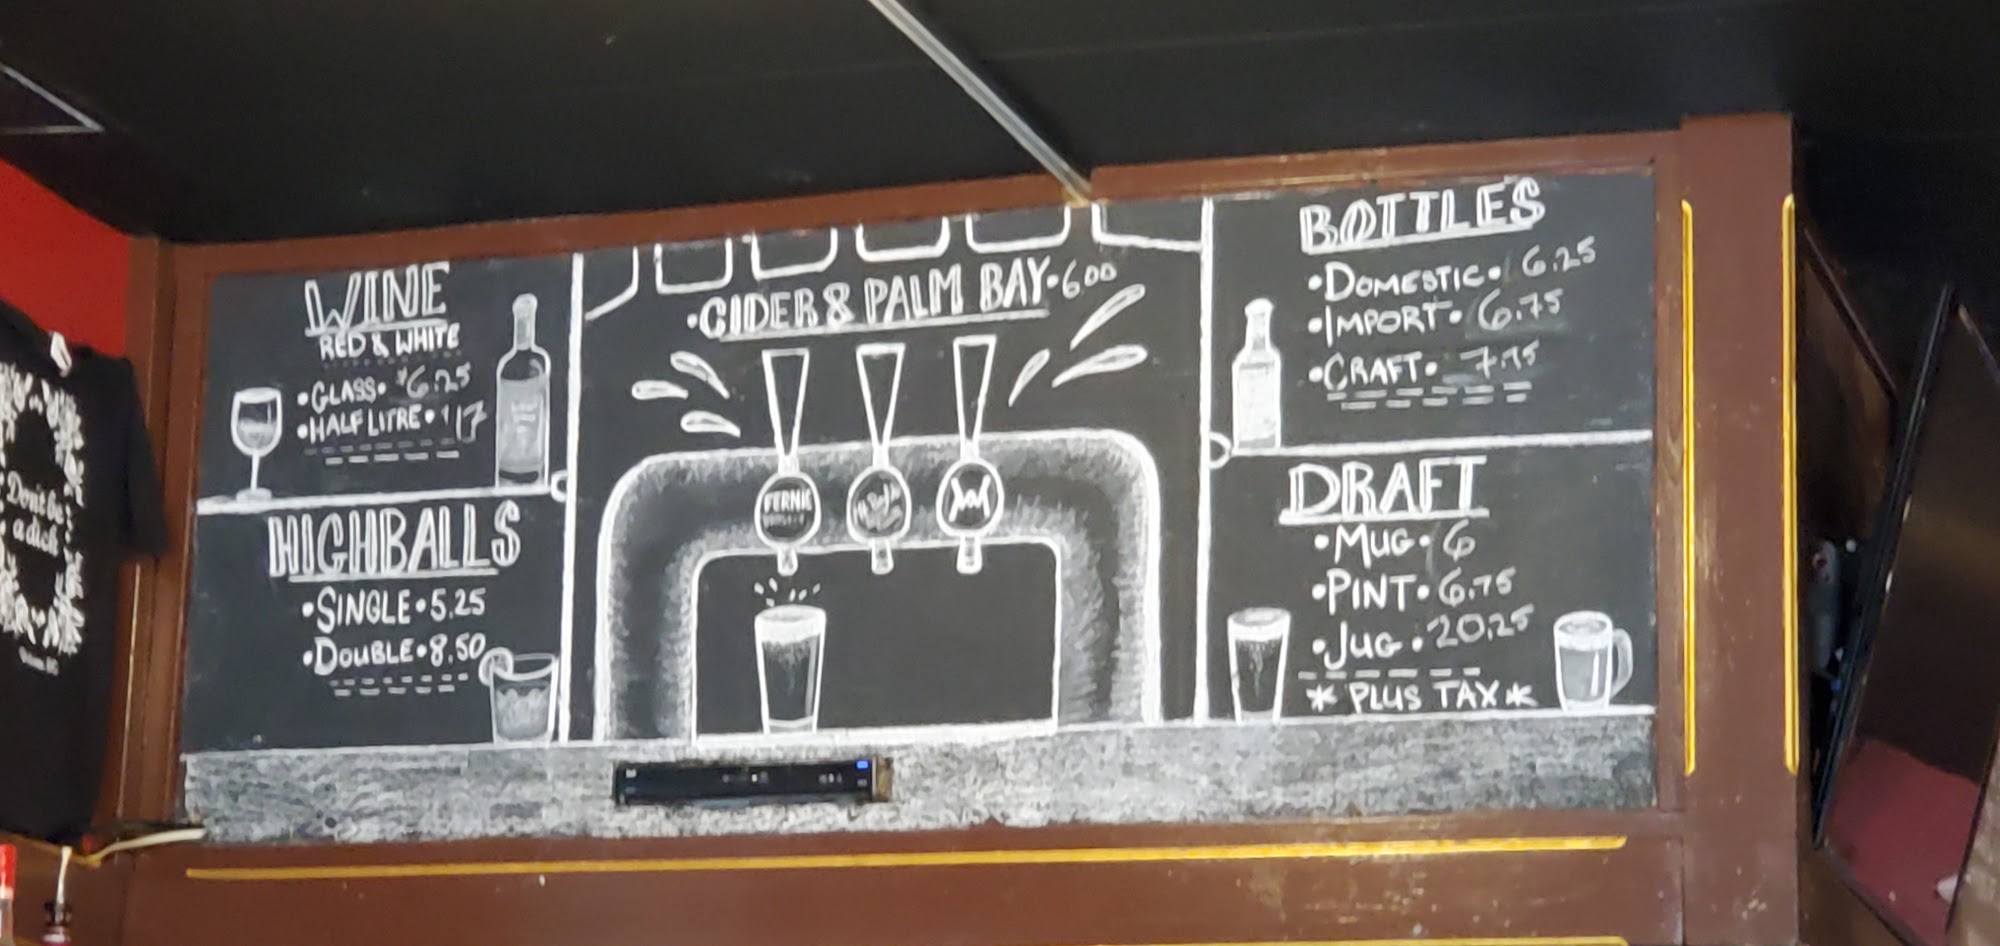 WINE
RED & WHITE
•GLASS• $6.25
•HALF LITRE• $17
HIGHBALLS
•SINGLE•5.25
•DOUBLE•8.50
•CIDER & PALM BAY•600
FERNIE
BOTTLES
•DOMESTIC• 6.25
•IMPORT• 6.75
•CRAFT• 7.75
DRAFT
•MUG• 6
•PINT•6.75
•JUG•20.25
* PLUS TAX *
Don't be
a dick